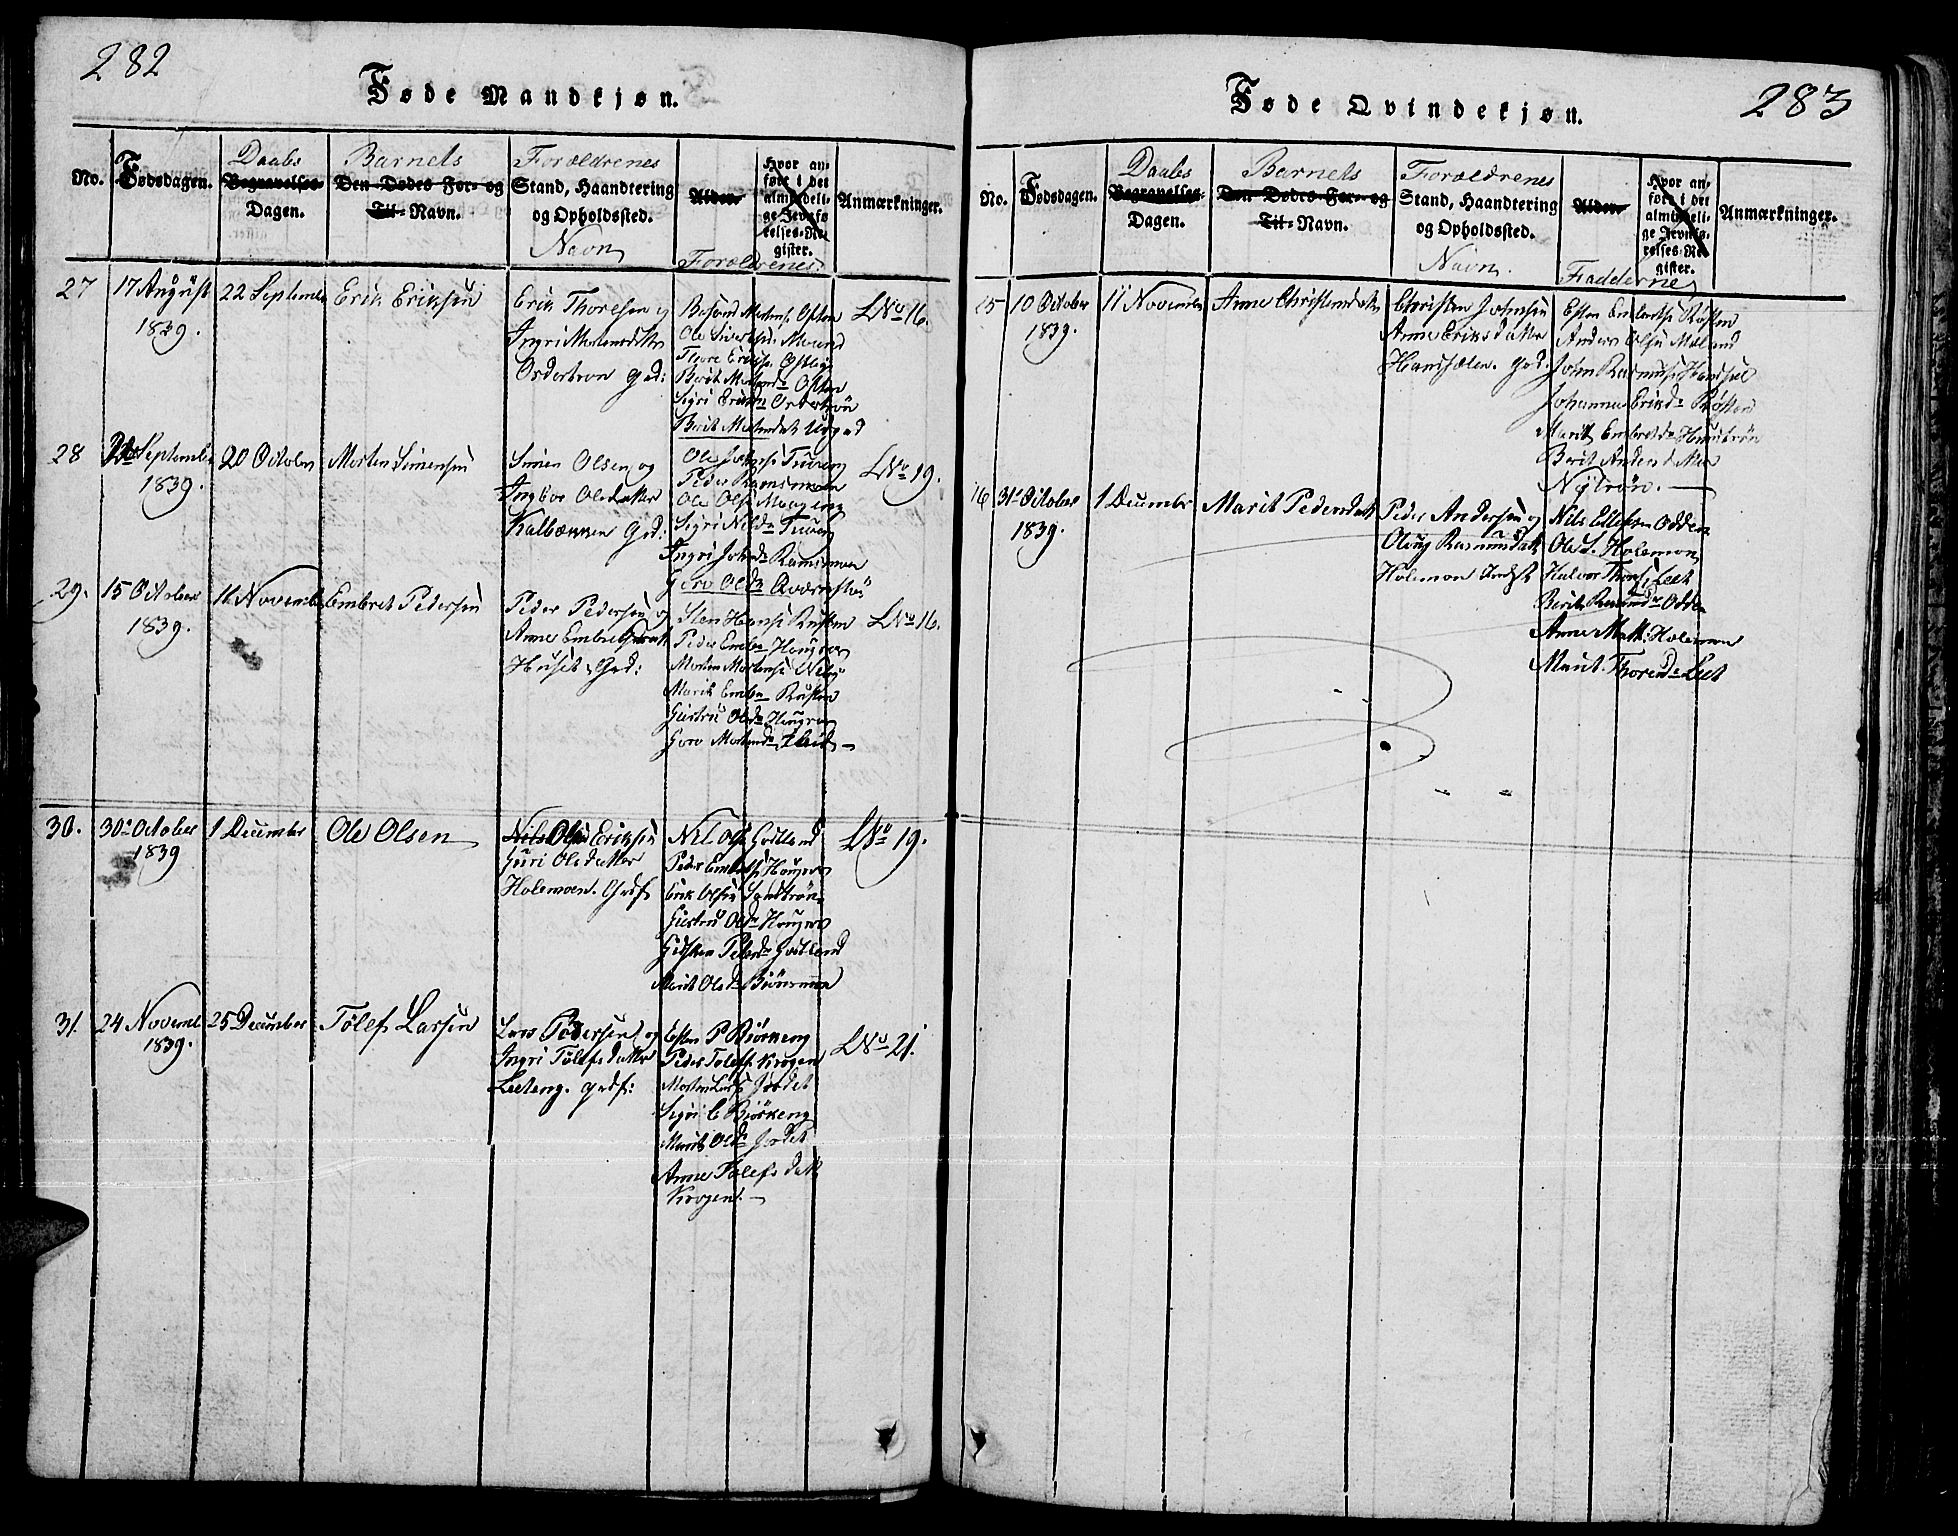 282
Føde Mandkjøn.
No.
Fødsdagen.
Daabs
Begravelses-
Dagen.
Barnets
Den Dødes For- og
Til-Navn.
Forældrenes
Stand, Haandtering
og Opholdssted.
Navn
Alder.
Forældrenes
Hvor an-
ført i det
almindeli-
ge Jevnfø-
relses-Re-
gister.
Anmærkninger.
27
17 August
1839.
22 Septembr
Erik Eriksen
Erik Thoresen og
Ingri Mortensdatter
Ordertrøn Grd:
Ole Sivertsen Mound
Sigri Eriksdr Ordertrøn
LNo 16.
28
Septembr
1839.
20 October
Morten Simensen
Simen Olsen og
Ingbor Olsdatter
Kalbækken Grd:
Peder Ramsmoen
Ole Olss Moegeng
Sigri Nilsdr
Ingri Johnsdr Ramsmoen
LNo 19.
29.
15 October
1839.
11 Novembr
Embret Pedersen
Peder Pedersen og
Anne Embretsdatt
Huset Grd:
Sten Hanss Rusten
Peder Embr Haugen
Marit Embr Rusten
Gjertru Olsdr Haugen
Goro Mortensdr
LNo 16.
30.
30te October
1839
1 Decembr
Ole Olsen
Nils Ole Eriksen
Guri Olsdatter
Holemoen. Grdf
Nils Ols Godtland
Peder Embrets Haugen
Erik Olsen Sandtrøn
Gjertru Olsdr Haugen
Gidsken Pedersdr Godtland
Marit Olsdr Biørnsmoen
LNo 19.
31.
24 Novembr
1839.
25 December
Tølef Larsen
Lars Pedersen og
Ingri Tølefsdatter
Leeteng. Grdf:
Esten P Biørkeng
Peder Tolefs. Krogen
Morten Lars Jordet
Sigri E Biørkeng
Marit Olsdr Jordet
Anne Tølefsdatt
Krogen. —
LNo 21.
283
Føde Qvindekjøn.
No.
Fødsdagen.
Daabs
Begravelses-
Dagen.
Barnets
Den Dødes For- og
Til-Navn.
Forældrenes
Stand, Haandtering
og Opholdssted.
Navn.
Alder.
Faddernes
Hvor an-
ført i det
almindeli-
ge Jevnfø-
relses-Re-
gister.
Anmærkninger.
15
10 October
1839.
11 Novembr
Anne Christensdatter
Christen Johnsen
Anne Eriksdatter
Hansælen. Grd.
Esten Embretss Røsten
Anders Olsen Moland
John Rasmuss Handsæl
Johanna Eriksdr Røsten
Marit Embretsdr
Berit Andersdatter
Nytrøn. —
16
31te October
1839.
1 Decembr
Marit Pedersdatt
Peder Andersen og
Oloug Rasmusdatt
Holemoen Indst
Nils Ellefsen Odden
Ole S. Holemoen
Halvor Thors Leet
Berit Rasmusdr Odden
Anne Matt. Holemoen
Marit Thoresdr Leet